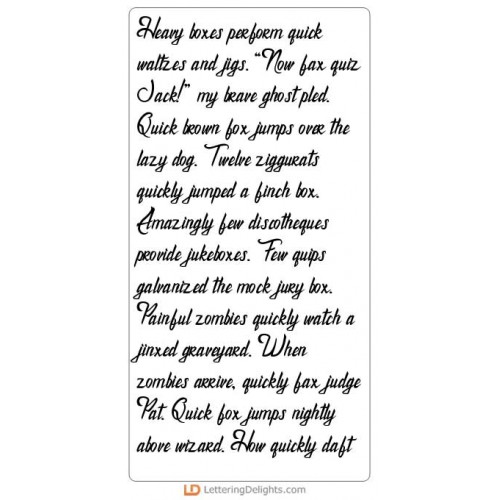 Heavy boxes perform quick
waltzes and jigs. "Now fax quiz
Jack!" my brave ghost pled.
Quick brown fox jumps over the
lazy dog. Twelve ziggurats
quickly jumped a finch box.
Amazingly few discotheques
provide jukeboxes. Few quips
galvanized the mock jury box.
Painful zombies quickly watch a
jinxed graveyard. When
zombies arrive, quickly fax judge
Pat. Quick fox jumps nightly
above wizard. How quickly daft
LD LetteringDelights.com